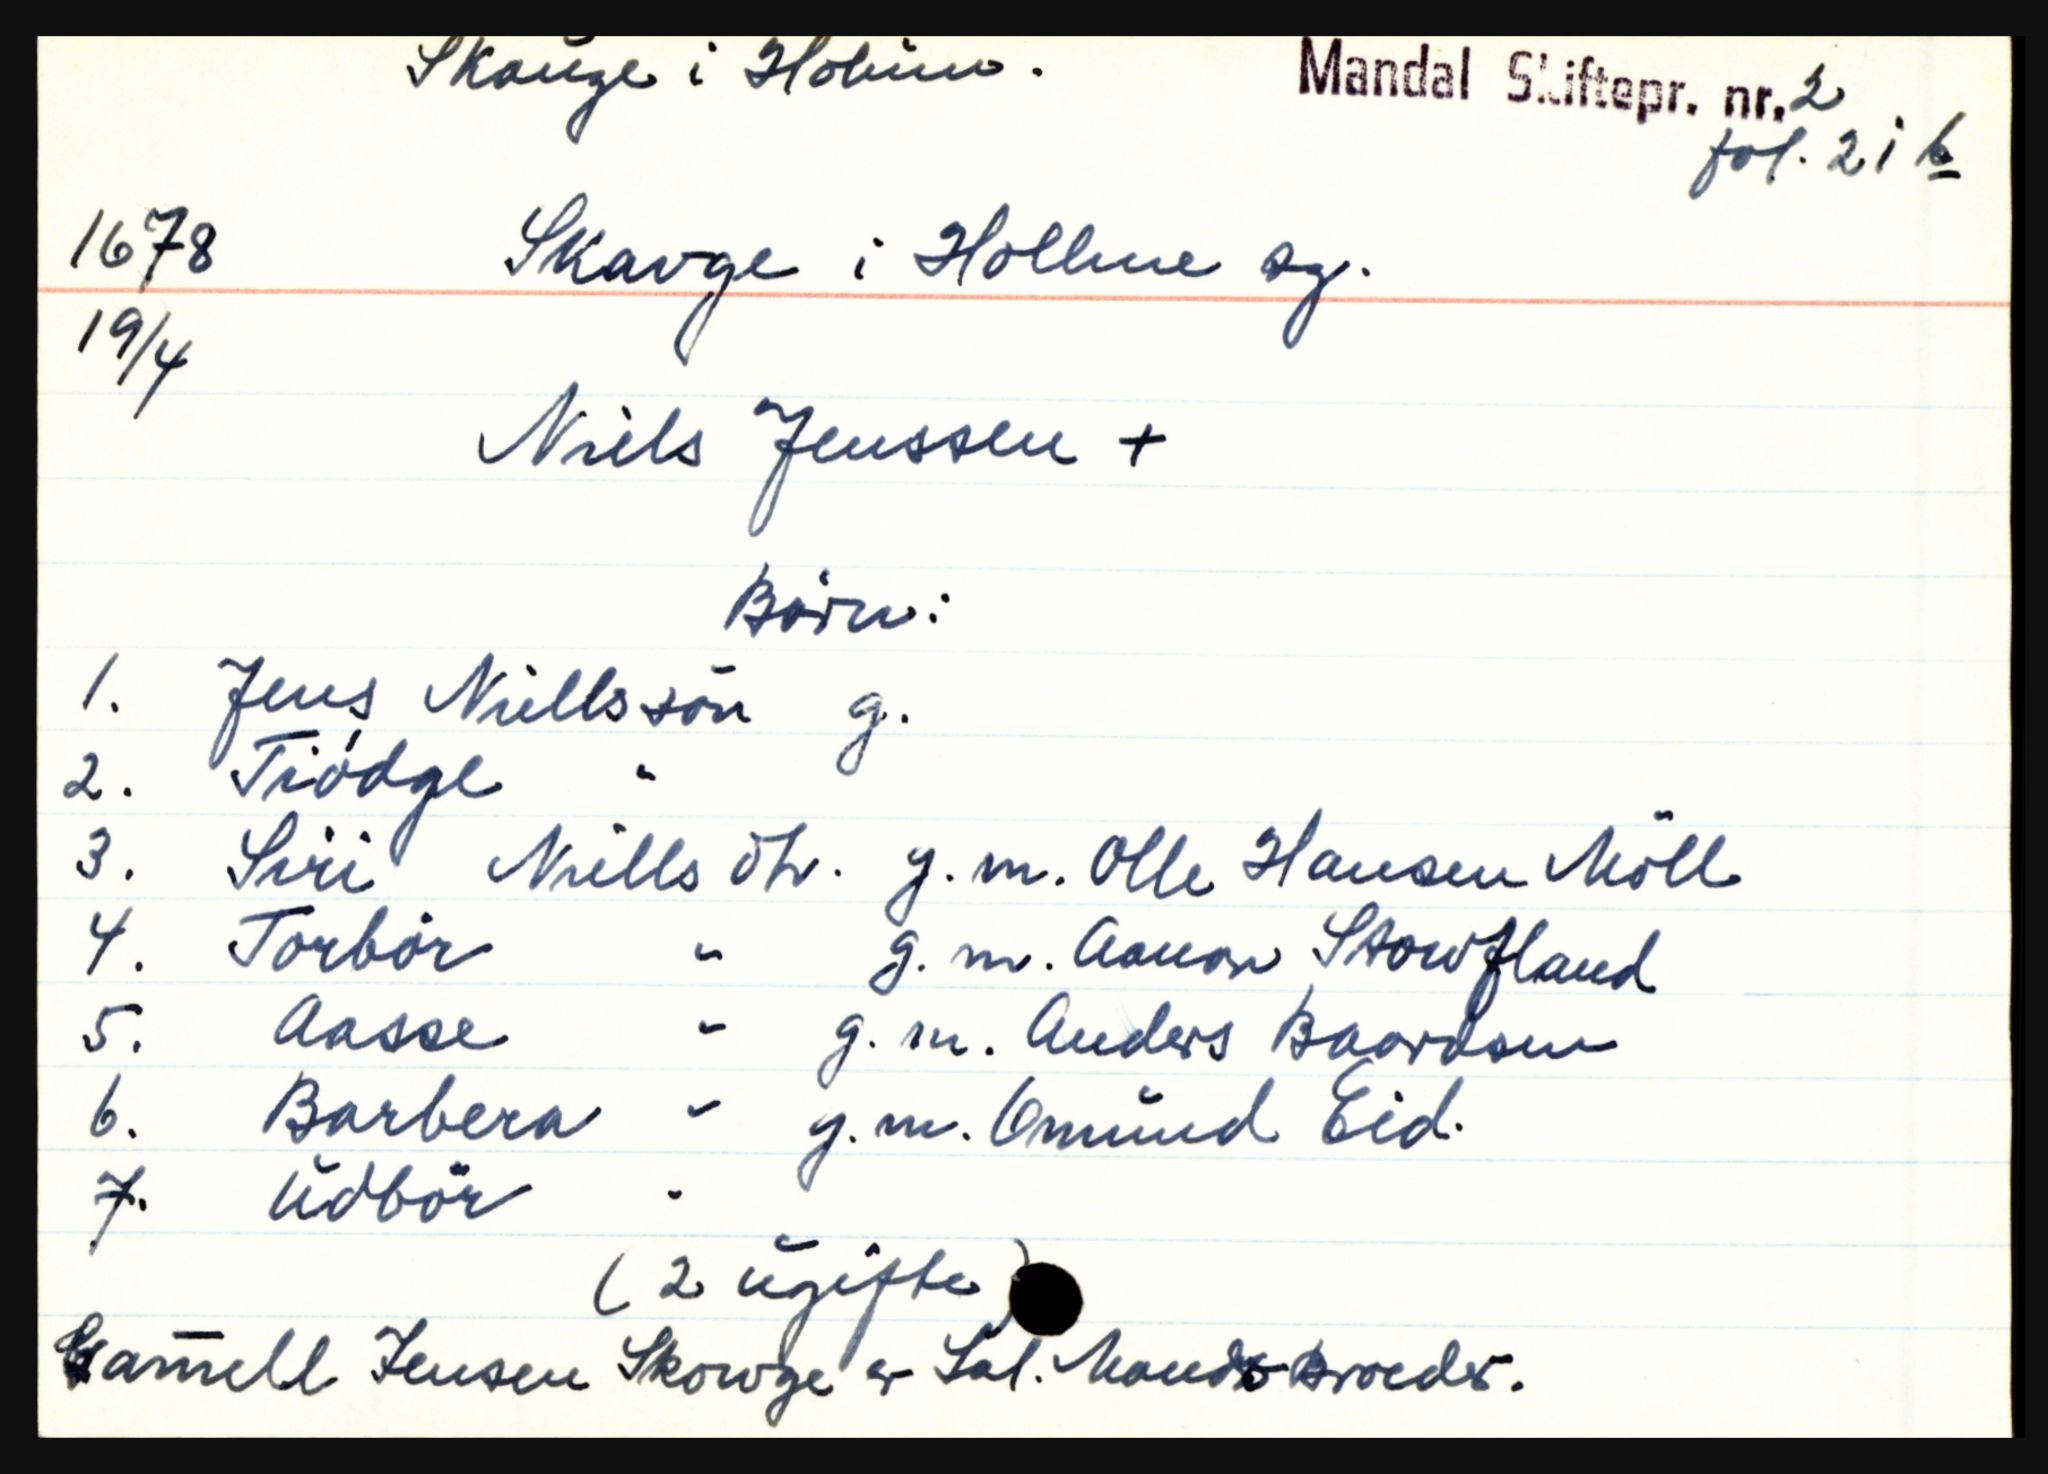 Skauge i Holum.
Mandal Skiftepr. nr. 2
fol. 21 b
1678 Skavge i Hollme sg.
19/4
Niels Jenssen +
Børn:
1. Jens Niellssön g.
2. Tiödge "
3. Siri Niells dtr. g. m. Olle Hansen Möll
4. Torbör " g. m. Aanon Stowfland
5. Aasse " g. m. Anders Baardsen
6. Barbera " g. m. Omund Eid.
7. Udbör "
(2 ugifte)
Gam̅ell Jensen Skowge er Sal. Mands Broeder.